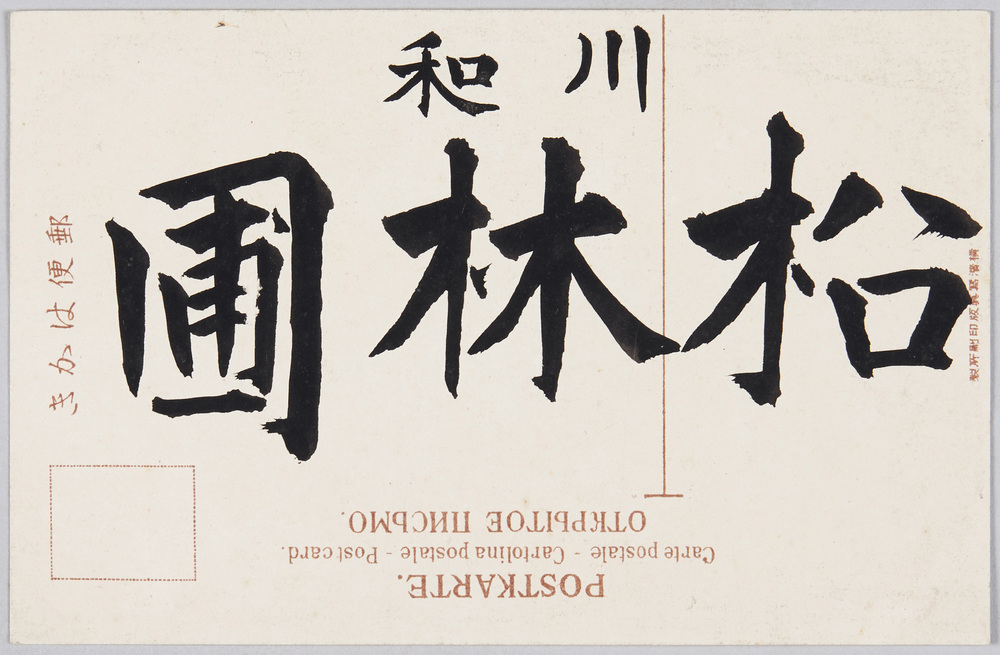 川和
柗林圃
横濱寫眞版印刷所製
郵便はかき
POSTKARTE.
Carte postale - Cartolina postale - Post card.
ОТКРЫТОЕ ПИСЬМО.